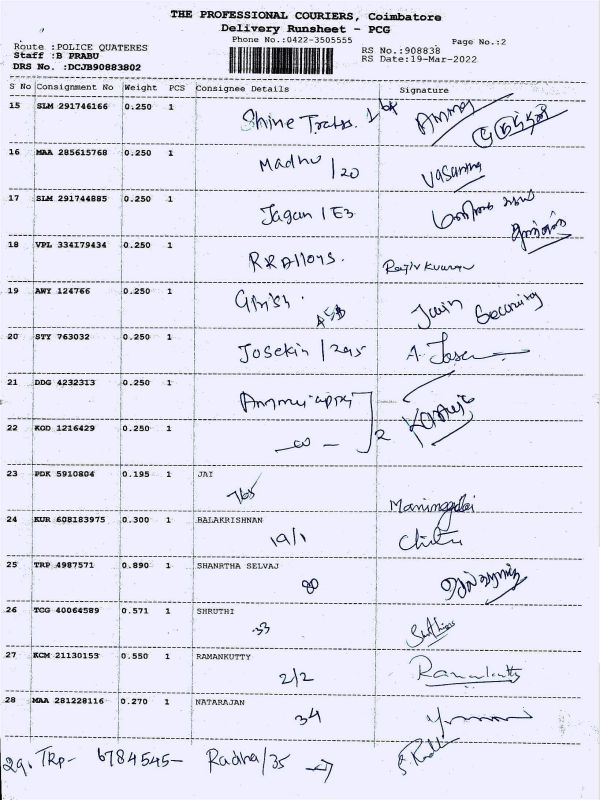 THE PROFESSIONAL COURIERS, Coimbatore
Delivery Runsheet - PCG
Phone No.:0422-3505555 Page No.:2
Route :POLICE QUATERES RS No.:908838
Staff :B PRABU RS Date:19-Mar-2022
DRS No. :DCJB90883802
S No Consignment No Weight PCS Consignee Details Signature
15 SLM 291746166 0.250 1 Shine
16 MAA 285615768 0.250 1 Madhu /20 Vasantha
17 SLM 291744885 0.250 1 Jagan / E3
18 VPL 334179434 0.250 1 RR Alloys. Rajiv Kumar
19 AWY 124766 0.250 1 Girish. Jain Security
20 STY 763032 0.250 1 Josekin / 295 A. Jose
21 DDG 4232313 0.250 1
22 KOD 1216429 0.250 1 2
23 PDK 5910804 0.195 1 JAI
765
24 KUR 608183975 0.300 1 BALAKRISHNAN
19/1 Chitra
25 TRP 4987571 0.890 1 SHANRTHA SELVAJ
80
26 TCG 40064589 0.571 1 SHRUTHI
33
27 KCM 21130153 0.550 1 RAMANKUTTY
2/2 Ramankutty
28 MAA 281228116 0.270 1 NATARAJAN
34
29. TRP- 6784545- Radha/35